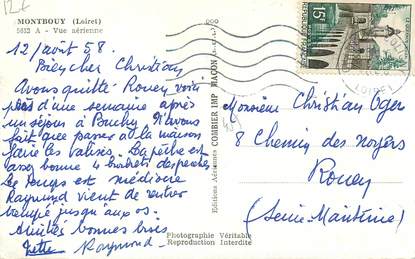 MONTBOUY (Loiret)
5652 A - Vue aérienne
12/août 58.
Bien cher Christian
Avons quitté Rouen voici
plus d'une semaine après
un séjour à Bouchy N'avons
fait que passer à la maison
faire les valises. La pêche est
assez bonne 4 brochets des perches
Le temps est médiocre
Raymond vient de rentrer
trempé jusqu'aux os.
Amitiés bonnes bises
Raymond
Editions Aériennes COMBIER IMP. MACON
Photographie Véritable
Reproduction Interdite
15F
Monsieur Christian Oger
8 Chemin des noyers
Rouen
(Seine Maritime)